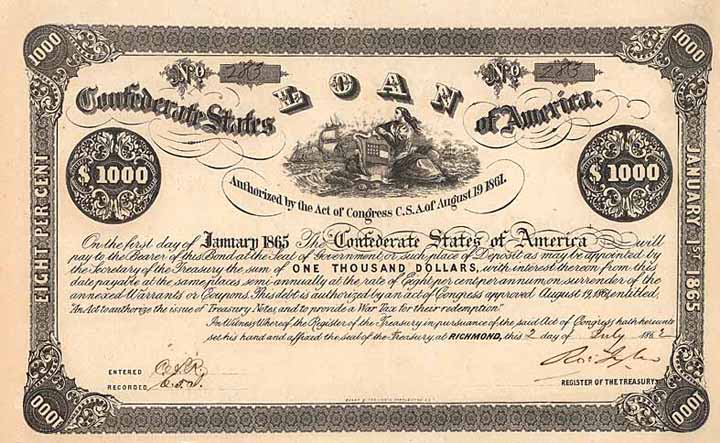 1000 1000
No 283 LOAN No 283
Confederate States of America.
$1000 $1000
Authorized by the Act of Congress C.S.A. of August 19 1861.
EIGHT PER CENT
JANUARY 1ST 1865
On the first day of January 1865 The Confederate States of America will
pay to the Bearer of this Bond at the Seal of Government or such place of Deposit as may be appointed by
the Secretary of the Treasury the sum of ONE THOUSAND DOLLARS, with interest thereon from this
date payable at the same places semi-annually at the rate of Eight per cent per annum on surrender of the
annexed Warrants or Coupons. This debt is authorized by an act of Congress approved August 19, 1861 entitled,
"An Act to authorize the issue of Treasury Notes, and to provide a War Tax for their redemption."
In Witness Whereof, the Register of the Treasury in pursuance of the said Act of Congress hath hereunto
set his hand and affixed the seal of the Treasury, at RICHMOND, this 2 day of July 1862
ENTERED
RECORDED
REGISTER OF THE TREASURY
1000 1000